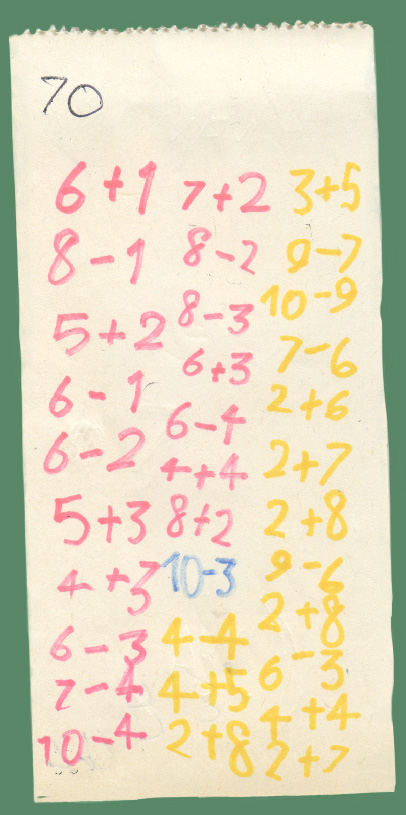 70
6+1
8-1
5+2
6-1
6-2
5+3
4+5
6-3
7-4
10-4
7+2
8-2
8-3
6+3
6-4
4+4
8+2
10-3
4-4
4+5
2+8
3+5
9-7
10-9
7-6
2+6
2+7
2+8
9-6
2+8
6-3
4+4
2+7